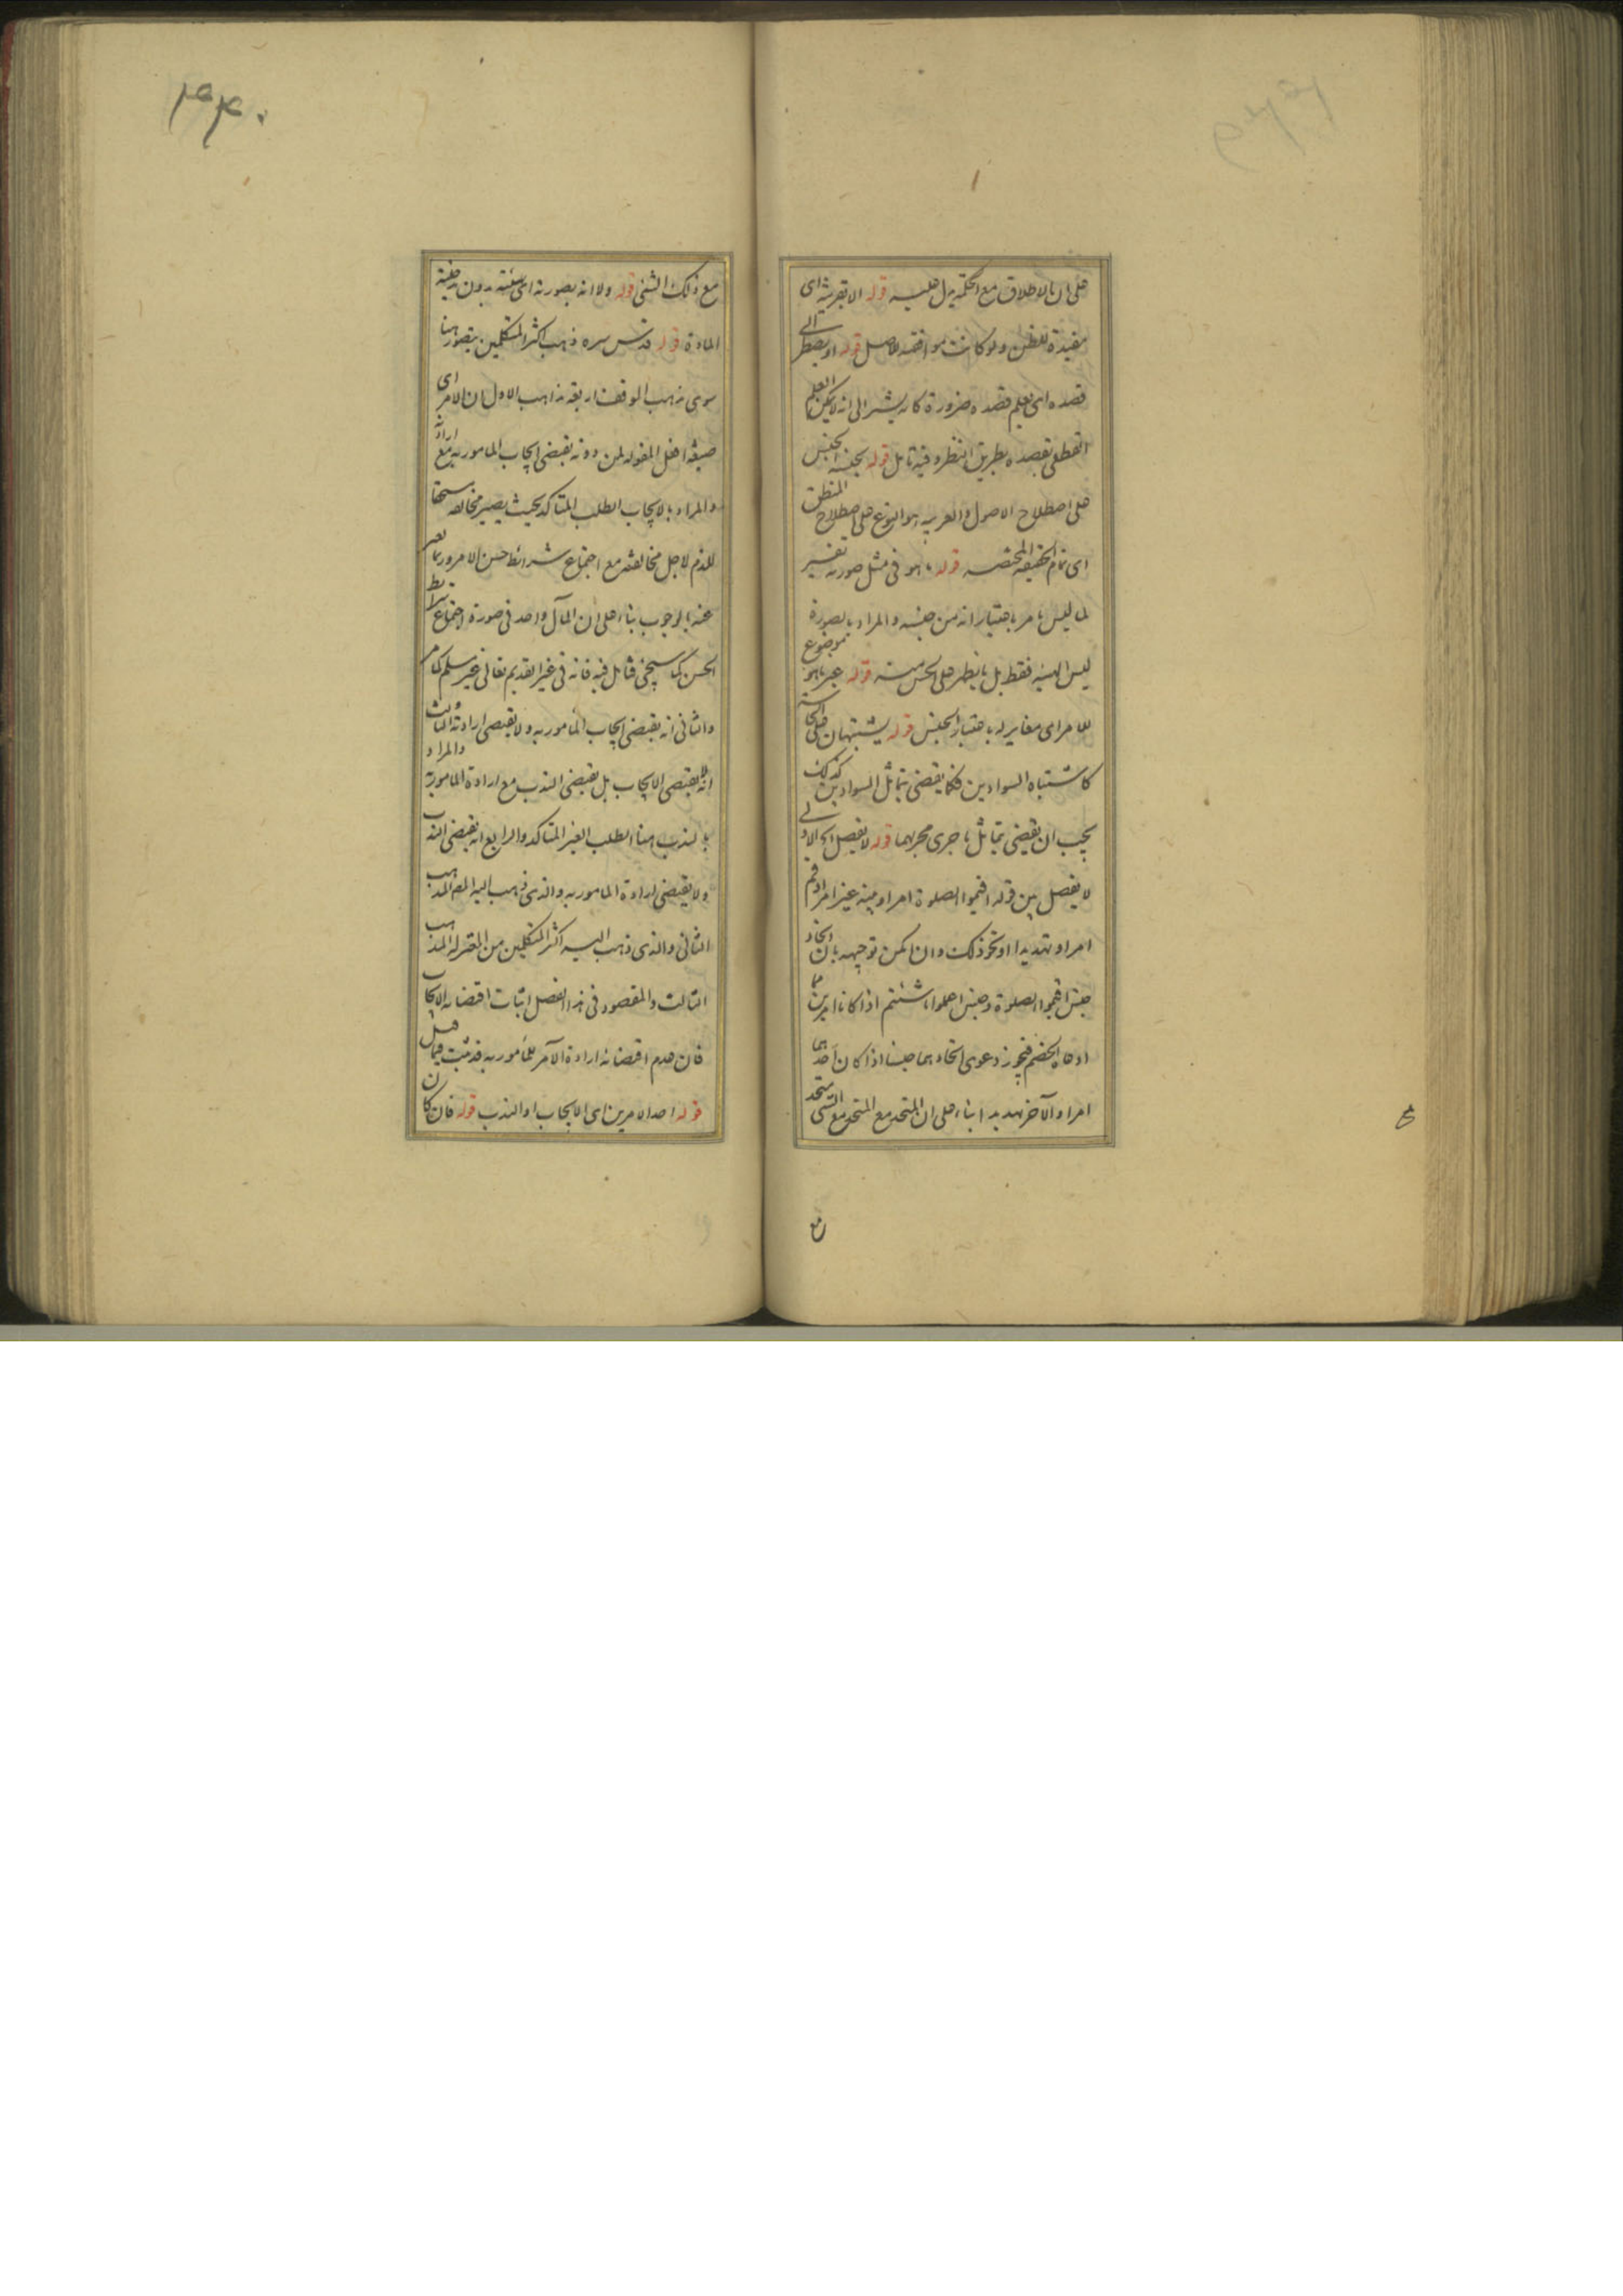 على ان الاطلاق مع الحكمة يدل عليه قوله الا بقرينة اى
مفيدة للظن ولو كانت موافقه للاصل قوله او يضطر الى
قصده اى نعلم قصده ضرورة كانه يشير الى انه لا يمكن العلم
القطعى بقصده بطريق النظر وفيه تامل قوله بجنسه الجنس
على اصطلاح الاصول والعربيه هو النوع على اصطلاح المنطق
اى تمام الحقيقة المختصه قوله ما هو فى مثل صورته تفسير
لما ليس بامر باعتبار انه من جنسه والمراد بالصورة
ليس الهيئه فقط بل بالنظر على الحس قوله بموضوع
للامر اى مغاير له باعتبار الجنس قوله يشتبهان على الحاسة
كاشتباه السوادين فكما يقضى بتماثل السوادين كذلك
يجب ان يقضى بتماثل ما جرى مجريهما قوله لا يفصل اى الاولى
لا يفصل بين قوله اقيموا الصلوة امرا وبينه غير امر
امرا وتهديدا او نحو ذلك وان امكن توجيهه بان اتحاد
جنس اقيموا الصلوة وجنس اعملوا ما شئتم اذا كانا امرين مما
ادعاه الخصم فيجوز دعوى اتحادهما جنسا اذا كان احدهما
امرا والآخر تهديدا بناء على ان المتحد مع المتحد مع الشئ متحد
مع
مع ذلك الشئ قوله ولا انه بصورته اى هيئته بدون
المادة قوله قدس سره ذهب اكثر المتكلمين يتصور هنا
سوى مذهب الوقف اربعة مذاهب الاول ان الامر اى
صيغة افعل المقوله لمن دونه يقتضى ايجاب المامور به مع ارادته
والمراد بالايجاب الطلب المتاكد بحيث يصير مخالفه مستحقا
للذم لاجل مخالفته مع اجتماع شرائط حسن الامر وربما يعبر
عنه بالوجوب بناء على ان المآل واحد فى صورة اجتماع شرائط
الحسن كما سيجئ فتامل فيه فانه فى غير القديم تعالى غير مسلم كما مر
والثانى انه يقتضى ايجاب المأمور به ولا يقتضى ارادته والثالث
انه لا يقتضى الايجاب بل يقتضى الندب مع ارادة المامور به والمراد
بالندب هنا الطلب الغير المتاكد والرابع انه يقتضى الندب
ولا يقتضى ارادة المامور به والذى ذهب اليه المص المذهب
الثانى والذى ذهب اليه اكثر المتكلمين من المعتزله المذهب
الثالث والمقصود فى هذا الفصل اثبات اقتضائه الايجاب
فان عدم اقتضائه ارادة الآمر للمأمور به قد ثبت فيما قبل
قوله احد الامرين اى الايجاب او الندب قوله فان كان